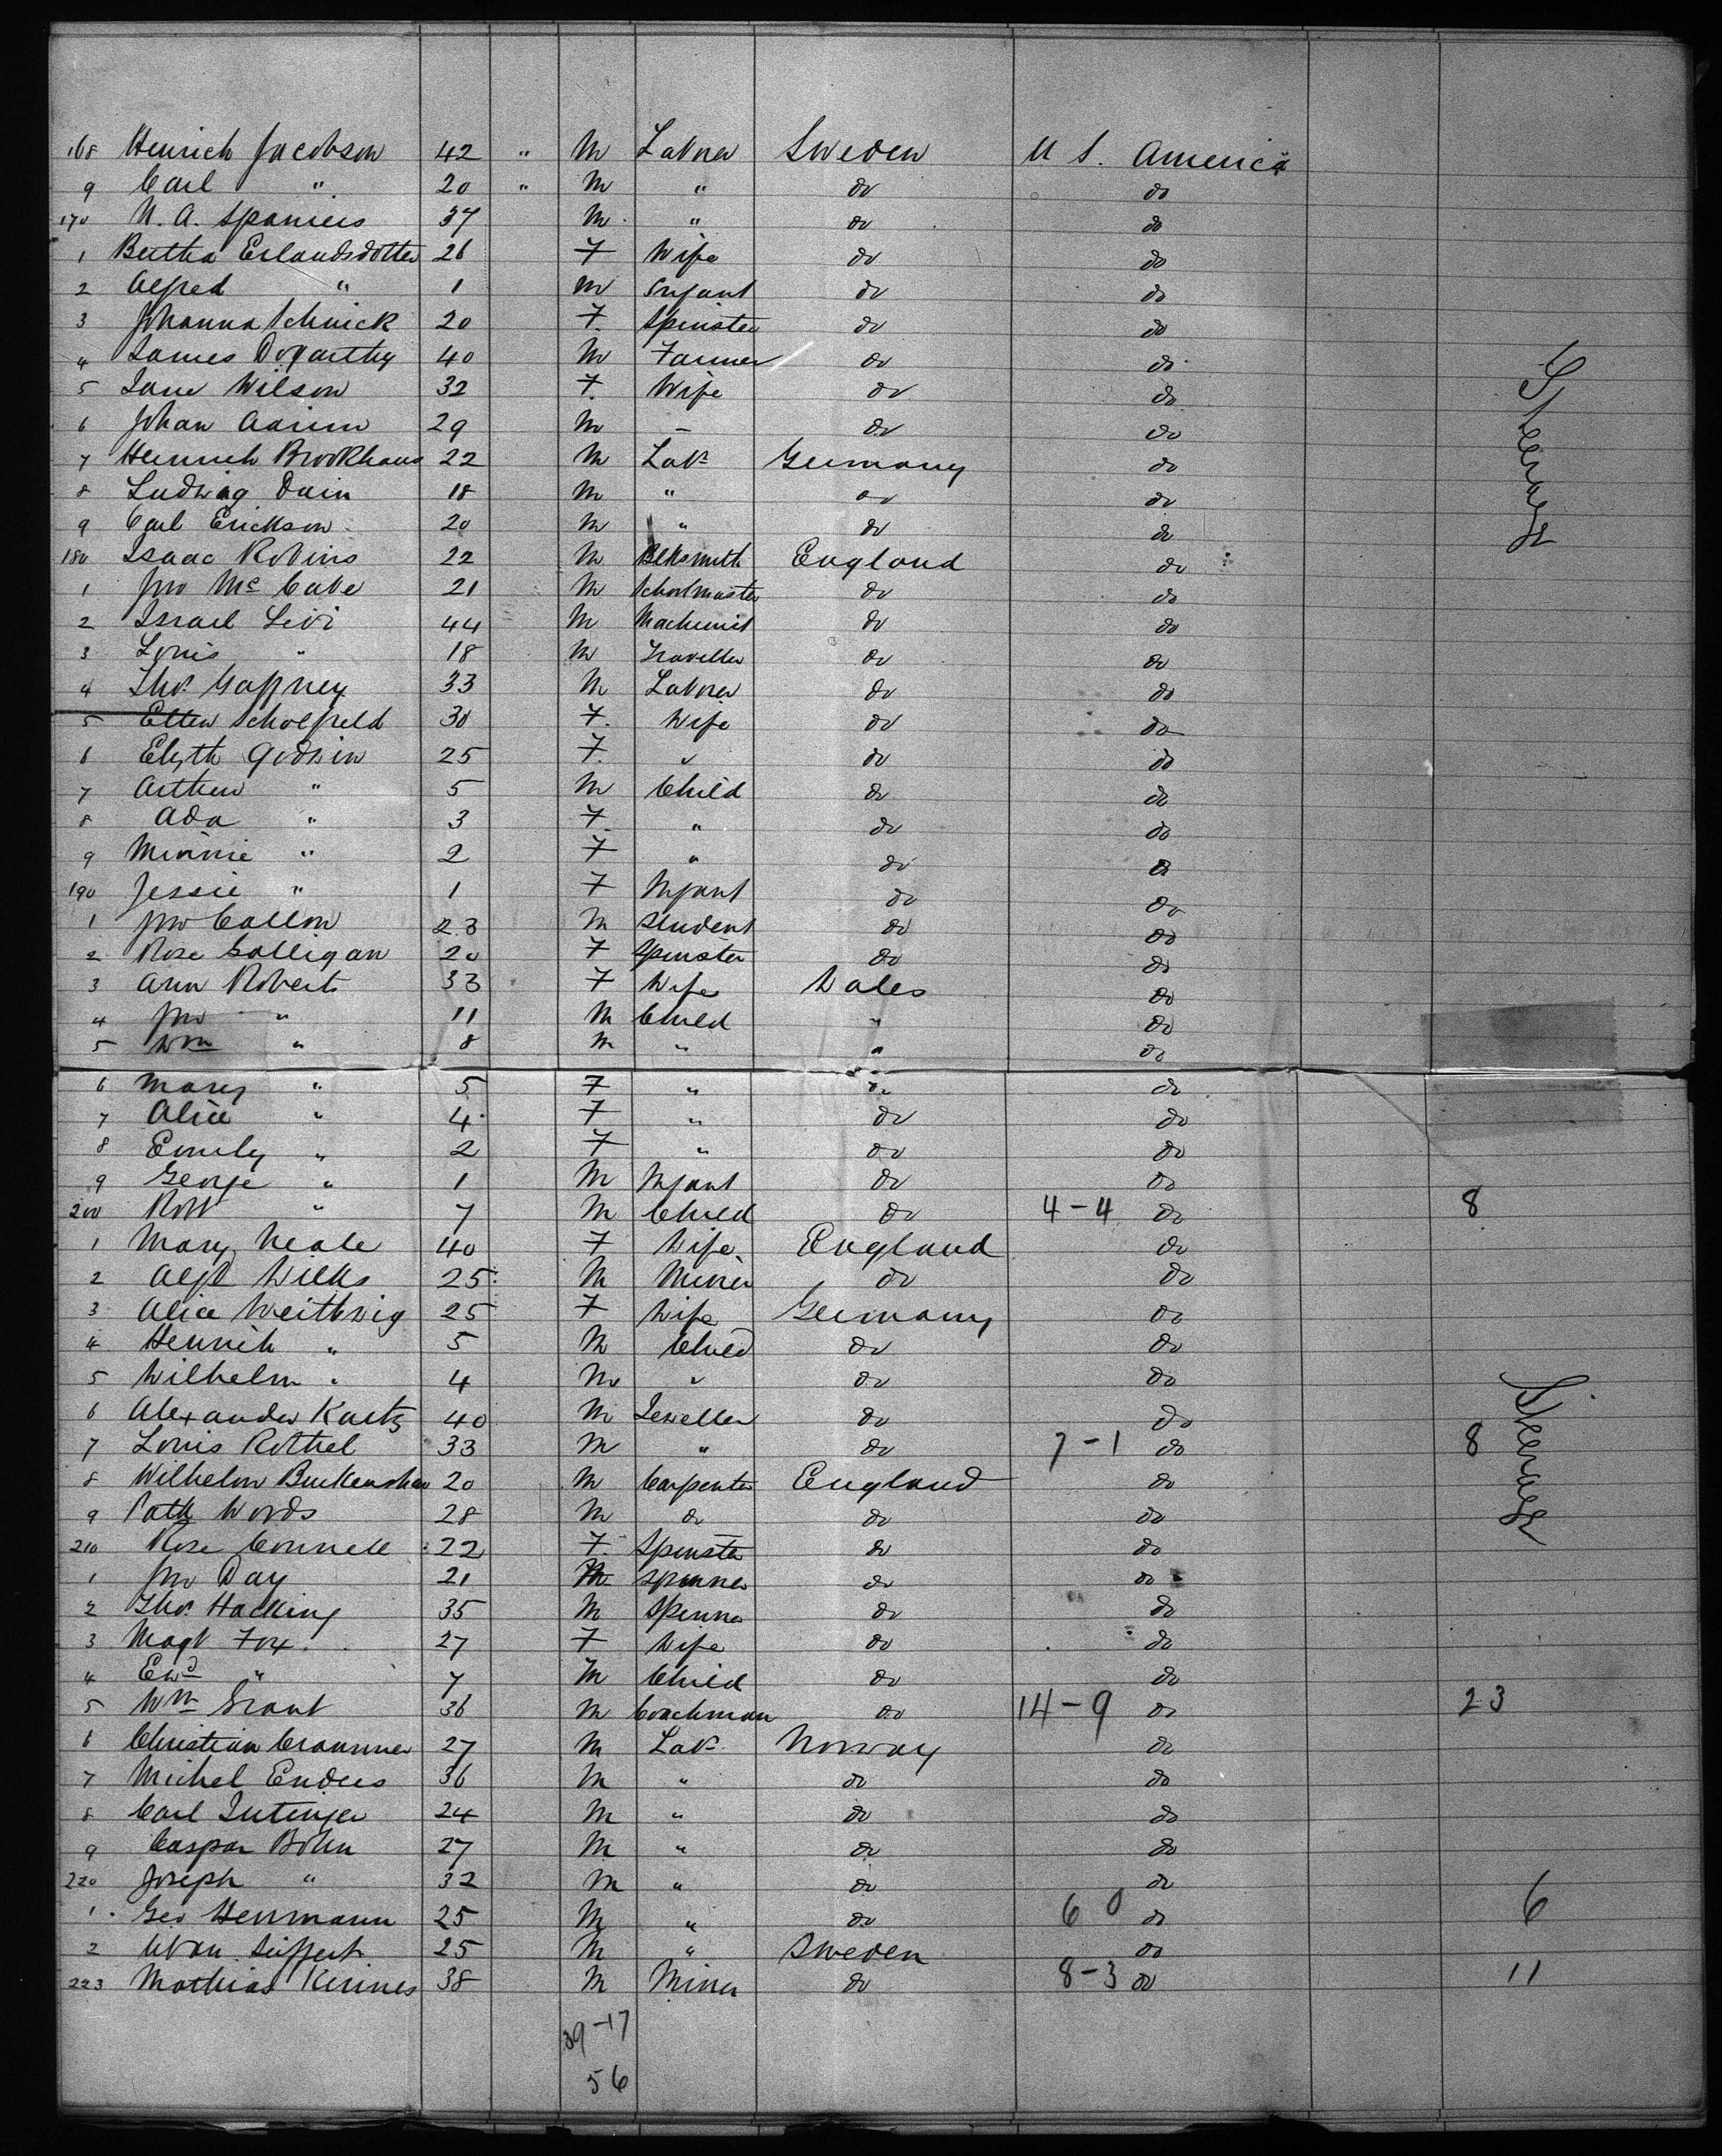 168 Henrich Jacobson 42 " M Labrer Sweden U S. America
9 Carl " 20 " M " do do
170 N. A. Spaniers 37 M " do do
1 Bertha Erlandsdotter 26 F Wife do do
2 Alfred " 1 M Infant do do
3 Johanna Schnick 20 F. Spinster do do
4 James Dogarthy 40 M Farmer do do
5 Jane Wilson 32 F. Wife do do
6 Johan 29 M – do do
7 Heinrich Brookhaus 22 M Labr Germany do
8 Ludwig Dain 18 M " do do
9 Carl Erickson 20 M " do do
180 Isaac Robins 22 M Blksmith England do
1 Jno McCabe 21 M Schoolmaster do do
2 Israel Levi 44 M Machinist do do
3 Louis " 18 M Traveller do do
4 Thos Gaffney 33 M Labrer do do
5 Ellen Scholfield 30 F. Wife do do
6 Elizth Godwin 25 F. " do do
7 Arthur " 5 M Child do do
8 Ada " 3 F. " do do
9 Minnie " 2 F " do do
190 Jessie " 1 F Infant do do
1 Jno Collon 23 M Student do do
2 Rose Galligan 20 F Spinster do do
3 Ann Roberts 33 F Wife Wales do
4 Jno " 11 M Child " do
5 Wm " 8 M " " do
6 Mary " 5 F " do do
7 Alice " 4 F " do do
8 Emily " 2 F " do do
9 George " 1 M Infant do do
200 Robt " 7 M Child do 4-4 do 8
1 Mary Neale 40 F Wife England do
2 Alfd Wilks 25 M Miner do do
3 Alice Weithwig 25 F Wife Germany do
4 Henrich " 5 M Child do do
5 Wilhelm " 4 M " do do
6 Alexander Kaetz 40 M Jeweller do do
7 Louis Rothel 33 M " do 7-1 do 8
8 Wilhelm 20 M Carpenter England do
9 Patk Words 28 M do do do
210 Rose Connell 22 F. Spinster do do
1 Jno Day 21 M Spinner do do
2 Thos Hacking 35 M Spinner do do
3 Magt Fox 27 F Wife do do
4 Ewd " 7 M Child do do
5 Wm Grant 36 M Coachman do 14-9 do 23
6 Christian 27 M Labr Norway do
7 Michel Enders 36 M " do do
8 Carl 24 M " do do
9 Caspar Bohn 27 M " do do
220 Joseph " 32 M " do do
1 Geo Herrmann 25 M " do 6 0 do 6
2 Seiffert 25 M " Sweden do
223 Mathias Kerines 38 M Miner do 8-3 do 11
39-17
56
Steerage
Steerage